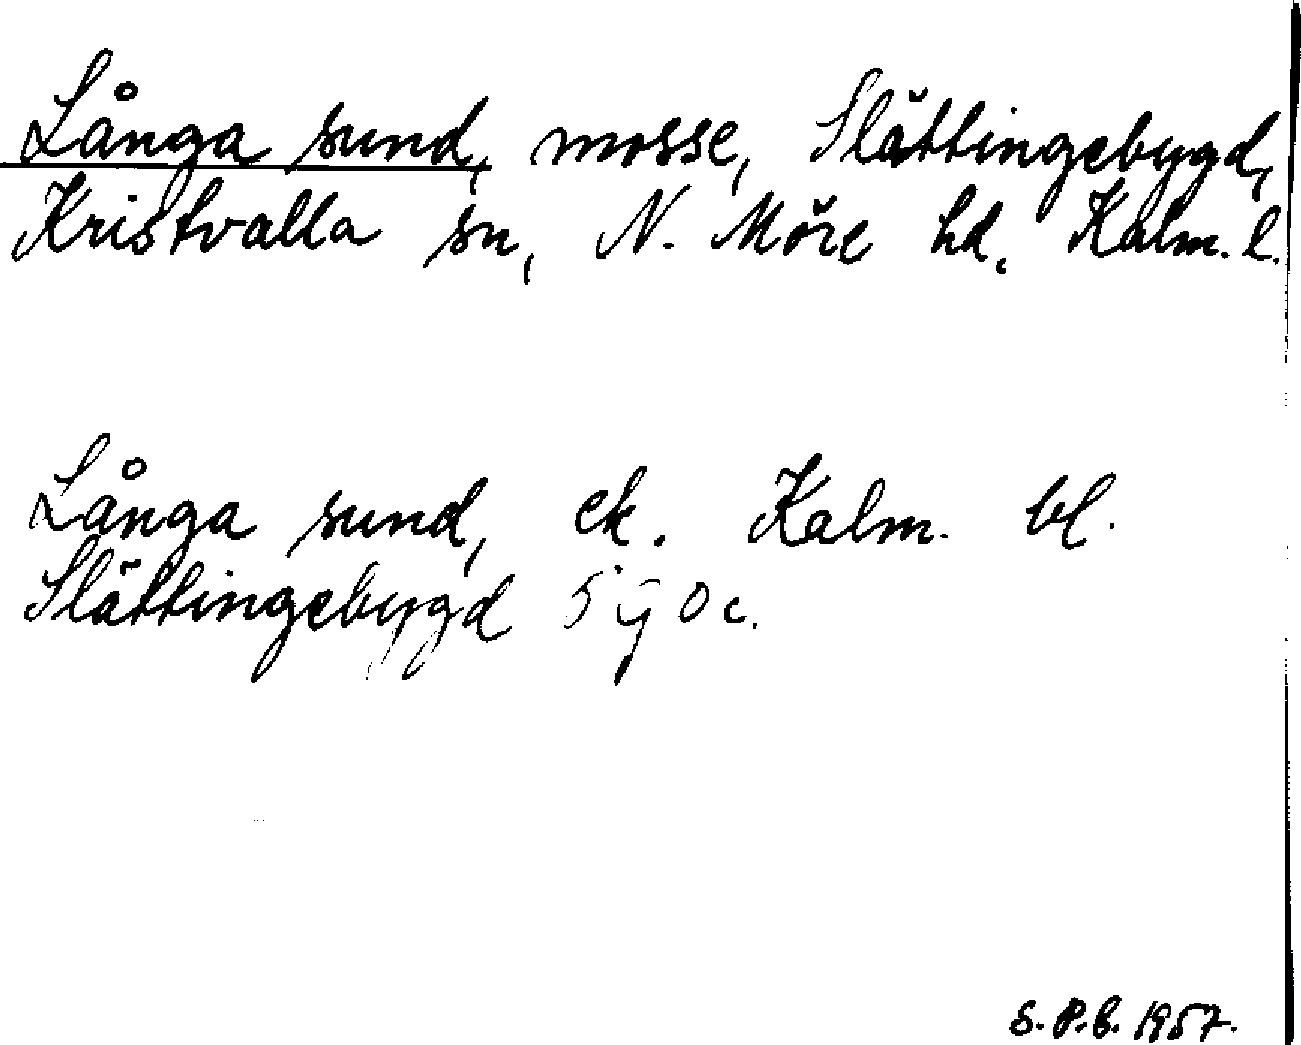 Långa sund, mosse, Slättingebygd,
Kristvalla sn, N. Möre hd. Kalm. l.
Långa sund, ek. Kalm. bl.
Slättingebygd 5 g 0 c.
S.P.B. 1957.